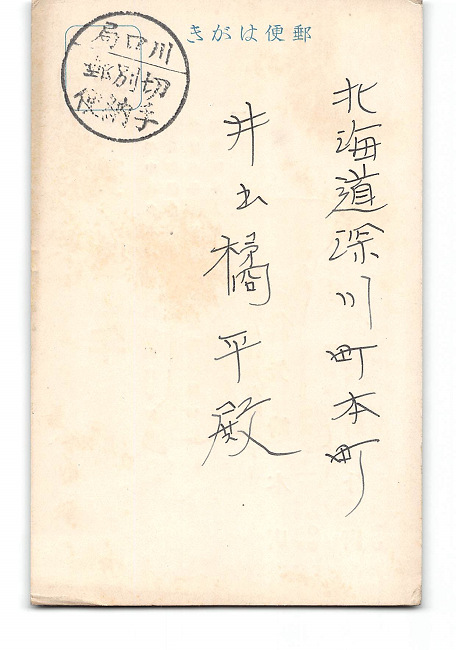 郵便はがき
川口局
切別郵
手納便
北海道深川町本町
井出橘平殿